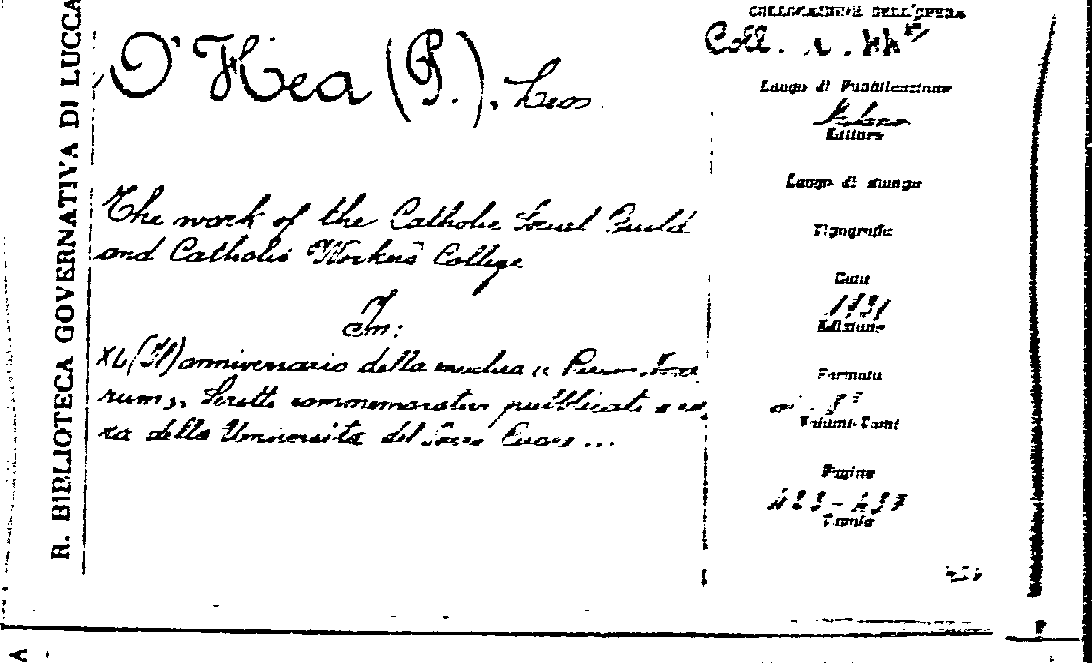 R. BIBLIOTECA GOVERNATIVA DI LUCCA
O'Hea (P.). Leo
The work of the Catholic Social Guild
and Catholic Workers College
In:
XL(40) anniversario della enciclica « Rerum Nova
rum ». Scritti commemorativi pubblicati a cu
ra della Università del Sacro Cuore ...
COLLOCAZIONE DELL'OPERA
Coll.
Luogo di Pubblicazione
Milano
Editore
Luogo di stampa
Tipografia
Data
1931
Edizione
Formato
in 8°
Volumi-Tomi
Pagine
Tavole